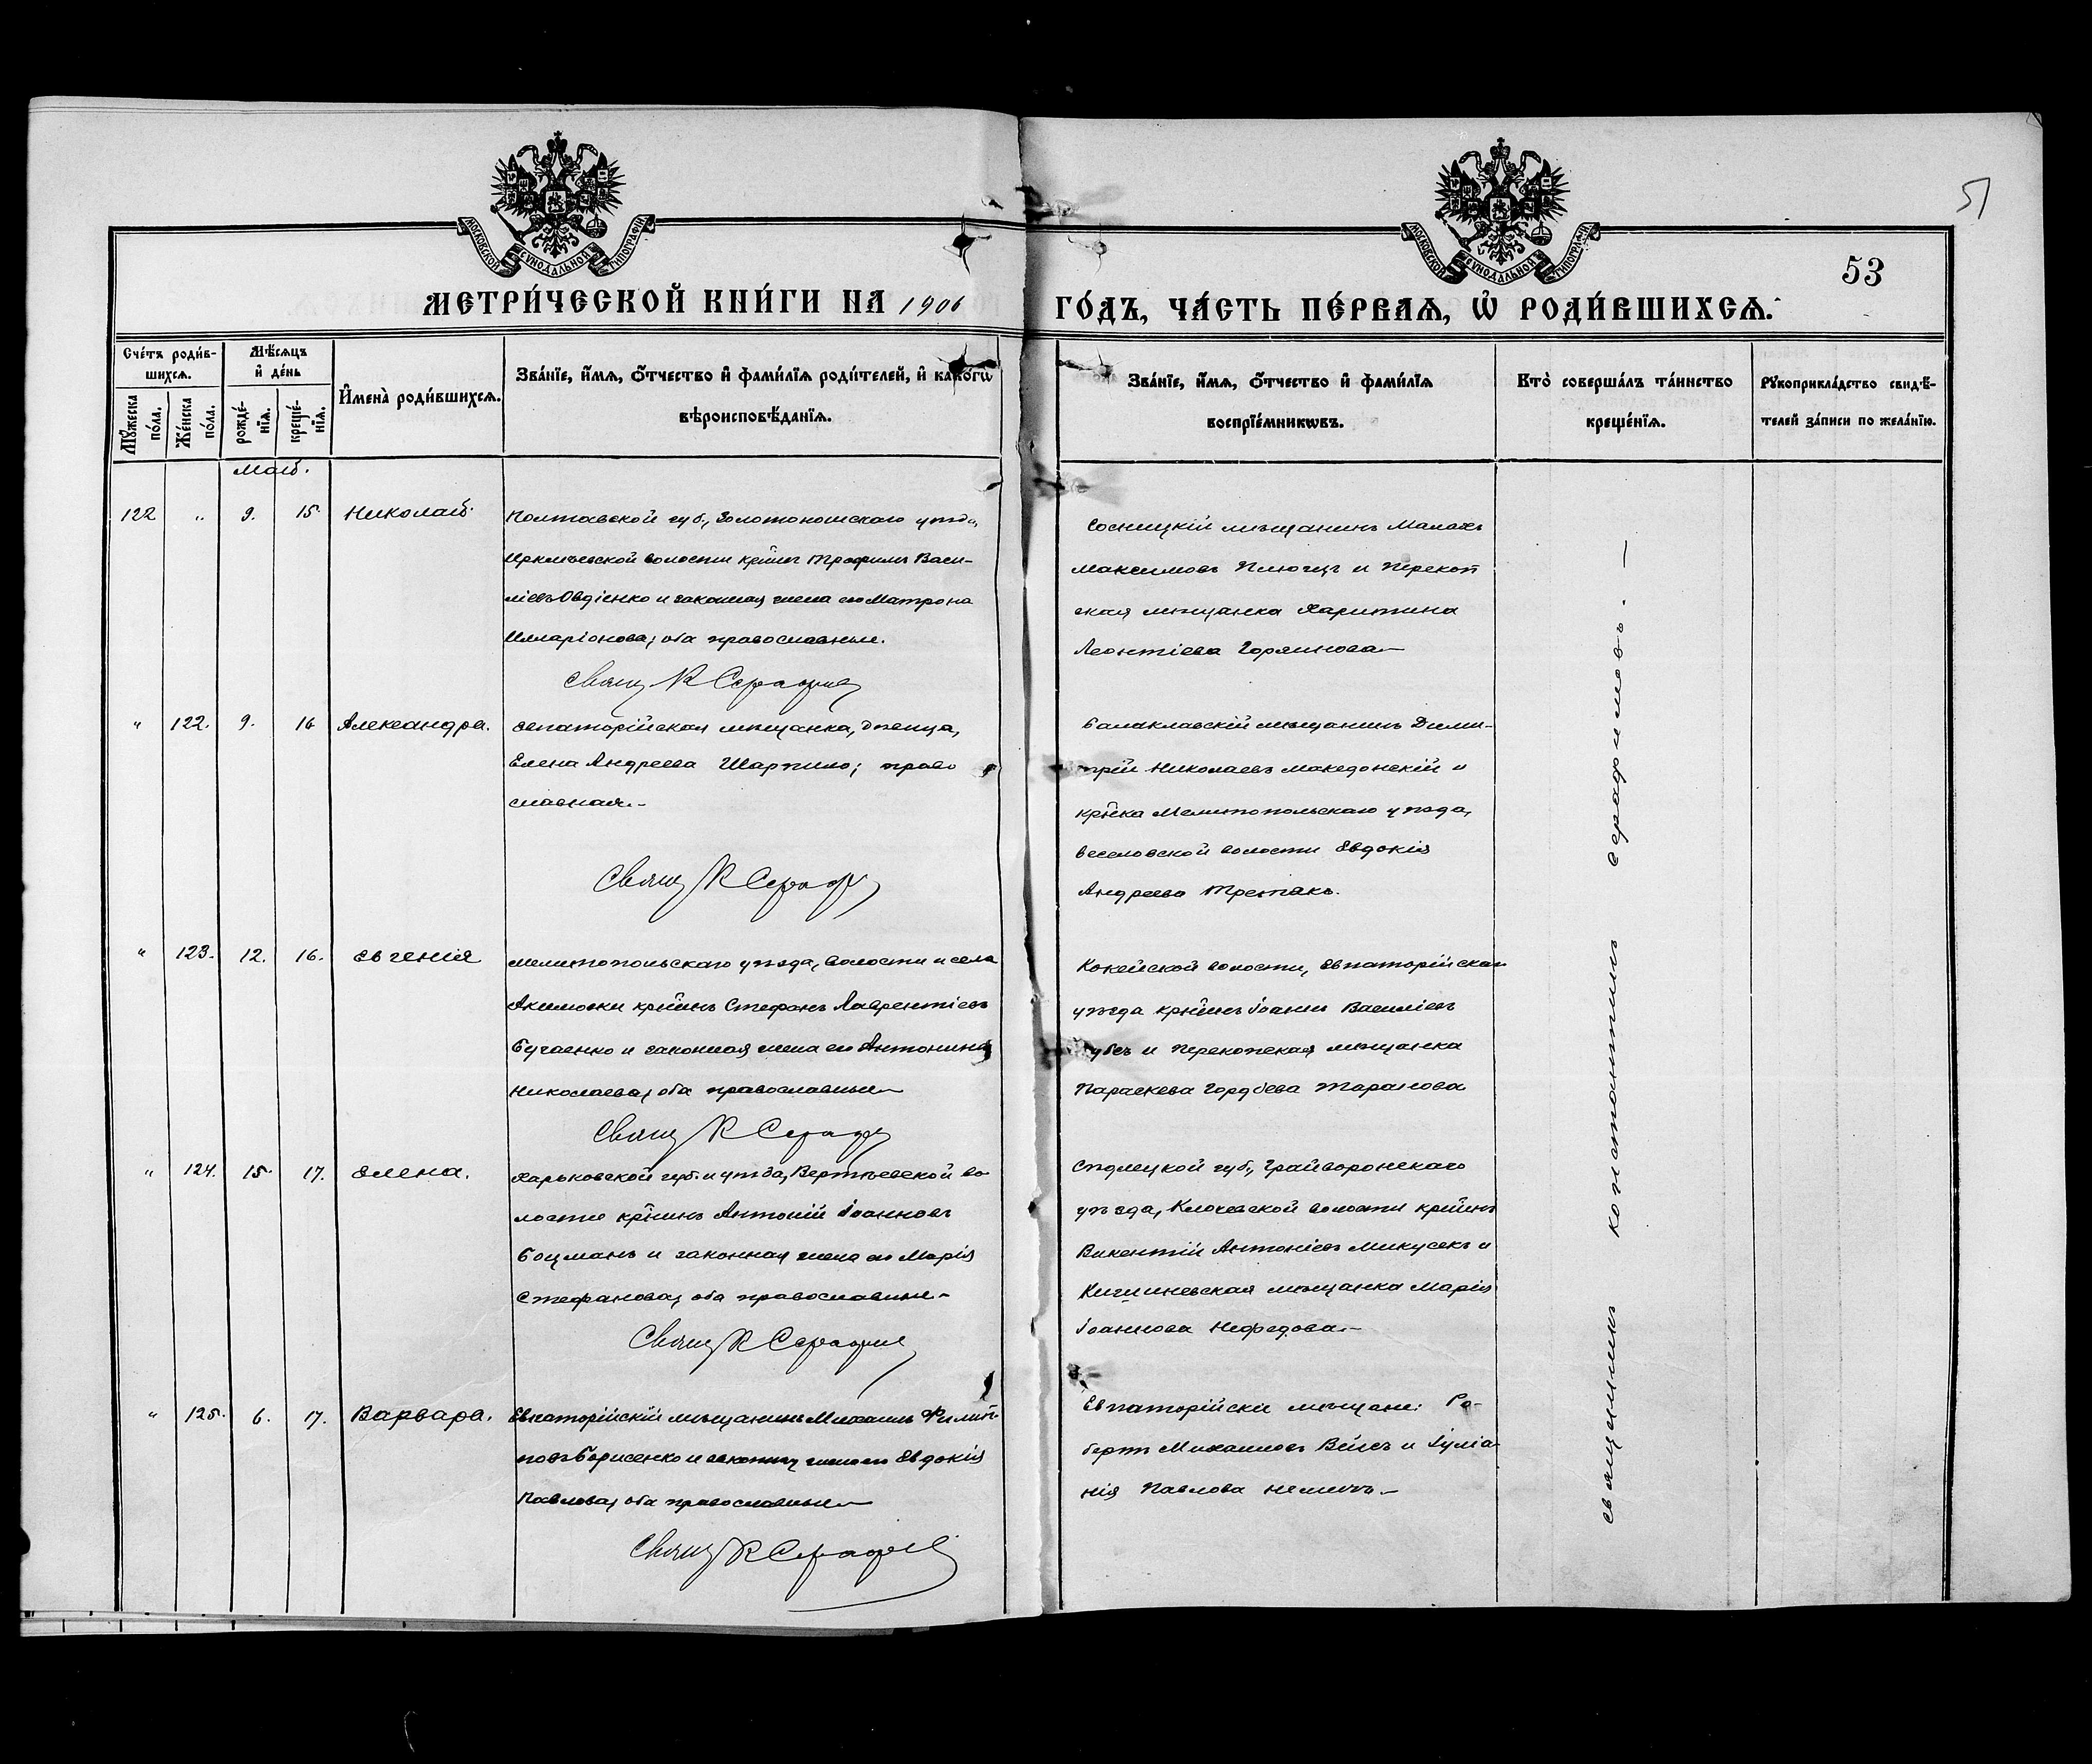 МОСКОВСКОЙ СУНОДАЛЬНОЙ ТИПОГРАФІИ
МОСКОВСКОЙ СУНОДАЛЬНОЙ ТИПОГРАФІИ
51
53
МЕТРИ́ЧЕСКОЙ КНИ́ГИ НА 1906
ГО́ДЪ, ЧА́СТЬ ПЕ́РВАѦ, Ѡ҆ РОДИ́ВШИХСѦ.
Сче́тъ роди́в-
шихсѧ.
Мꙋ́жеска
по́ла.
Же́нска
по́ла.
Мѣ́сѧцъ
и҆ де́нь
рожде́-
нїѧ.
креще́-
нїѧ.
И҆мена̀ роди́вшихсѧ.
Зва́нїе, и҆́мѧ, ѻ҆́тчество и҆ фами́лїѧ роди́телей, и҆ како́гѡ
вѣроисповѣ́данїѧ.
Зва́нїе, и҆́мѧ, ѻ҆́тчество и҆ фами́лїѧ
воспрїе́мникѡвъ.
Кто̀ соверша́лъ та́инство
креще́нїѧ.
Рꙋкоприкла́дство свидѣ́-
телей за́писи по жела́нїю.
Май.
122 " 9. 15. Николай.
Полтавской губ., Золотоношскаго уѣзда,
Ирклѣевской волости кр̃инъ Трофимъ Васи-
ліевъ Овдіенко и законная жена его Матрона
Илларіонова; оба православные.
Свящ К Серафим
Сосницкій мѣщанинъ Малахъ
Максимовъ и Перекоп
ская мѣщанка Харитина
Леонтіева Горяинова
" 122. 9. 16 Александра.
Евпаторійская мѣщанка, дѣвица,
Елена Андреева Шарпило; право
славная.
Свящ К Сераф
Балаклавскій мѣщанинъ Дими-
трій Николаевъ Македонскій и
кр̃нка Мелитопольскаго уѣзда,
Веселовской волости Евдокія
Андреева Третякъ.
" 123. 12. 16. Евгенія
Мелитопольскаго уѣзда, волости и села
Акимовки кр̃инъ Стефанъ Лаврентіевъ
Бугаенко и законная жена его Антонина
Николаева, оба православные
Свящ К Сераф
волости, Евпаторійскаго
уѣзда кр̃инъ Іоаннъ Василіевъ
и Перекопская мѣщанка
Параскева Гордѣева Таранова
" 124. 15. 17. Елена.
Харьковской губ. и уѣзда, во
лости кр̃инъ Антоній Іоанновъ
Боцманъ и законная жена его Марія
Стефанова, оба православные
Свящ К Серафим
губ., Грайворонскаго
уѣзда, волости кр̃инъ
Викентій Антоніевъ Микусекъ и
Кишиневская мѣщанка Марія
Іоаннова Нефедова
" 125. 6. 17. Варвара.
Евпаторійскій мѣщанинъ Михаилъ Филип-
повъ Борисенко и законная жена его Евдокія
Павлова, оба православные
Свящ К Серафим
Евпаторійскіе мѣщане: Ро-
бертъ Михаиловъ Вейсъ и Іуліа-
нія Павлова Немичъ.
Священникъ Константинъ Серафимовъ.